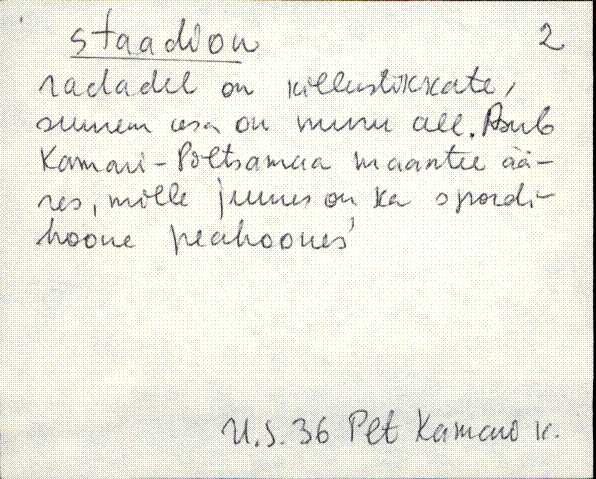 staadion 2
radadel on killustikkate,
suurem osa on muru all. Asub
Kamari-Põltsamaa maantee ää-
res, mille juures on ka spordi-
hoone peahoones'
U.S. 36 Plt Kamari k.